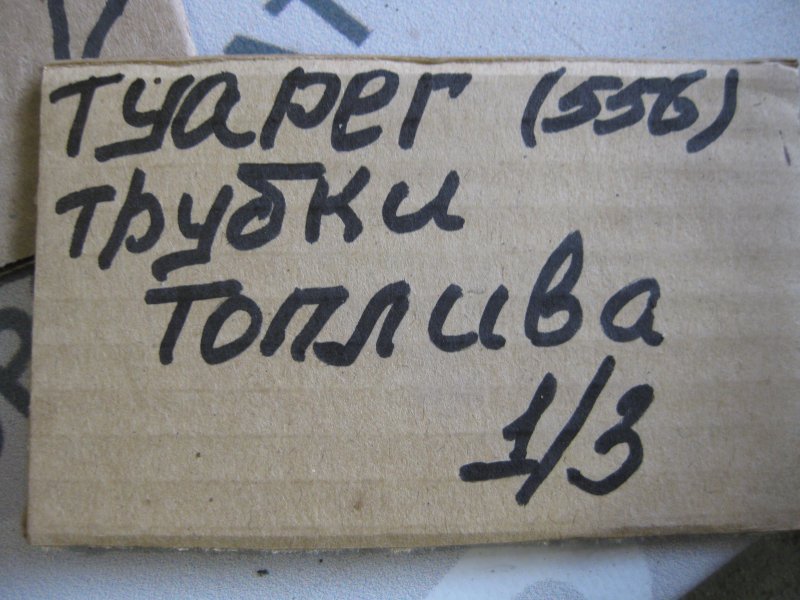 туарег (556)
трубки
топлива
1/3